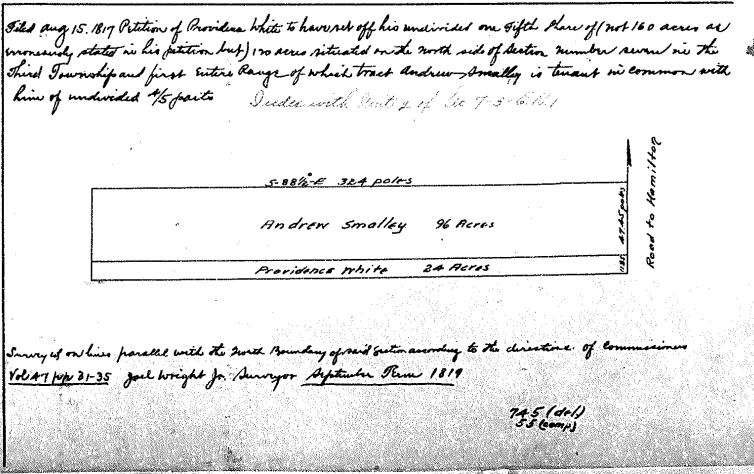 Filed Aug 15. 1817 Petition of Providence White to have set off his undivided one Fifth Share of (not 160 acres as
erroneously stated in his petition but) 120 acres situated on the north side of Section number seven in the
Third Township and first Entire Range of which tract Andrew Smalley is tenant in common with
him of undivided 4/5 parts
Index with Entire Range of Sec 7-3-E.R.1
S-88½°-E 324 poles
Andrew Smalley 96 Acres
47.45 poles
Road to Hamilton
Providence White 24 Acres
1185
Surveyed on lines parallel with the North Boundary of said Section according to the directions of Commissioners
Vol A7 pp 31-35 Joel Wright Jr. Surveyor September Term 1819
745 (del.)
55 (comp)